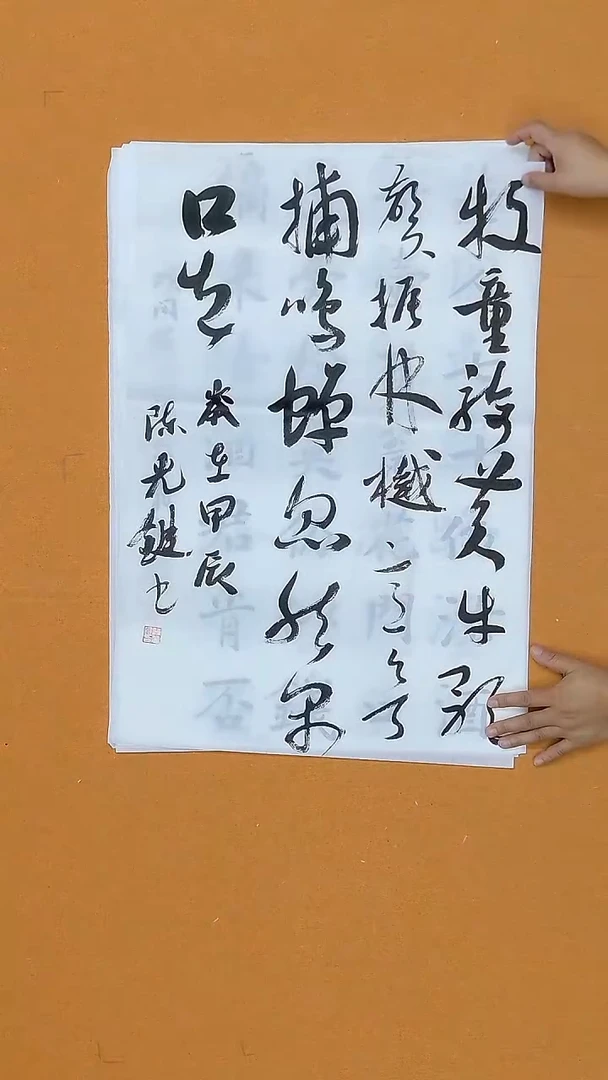 牧童騎黄牛歌
聲振林樾意欲
捕鸣蟬忽然闭
口立
歲在甲辰
陈光书